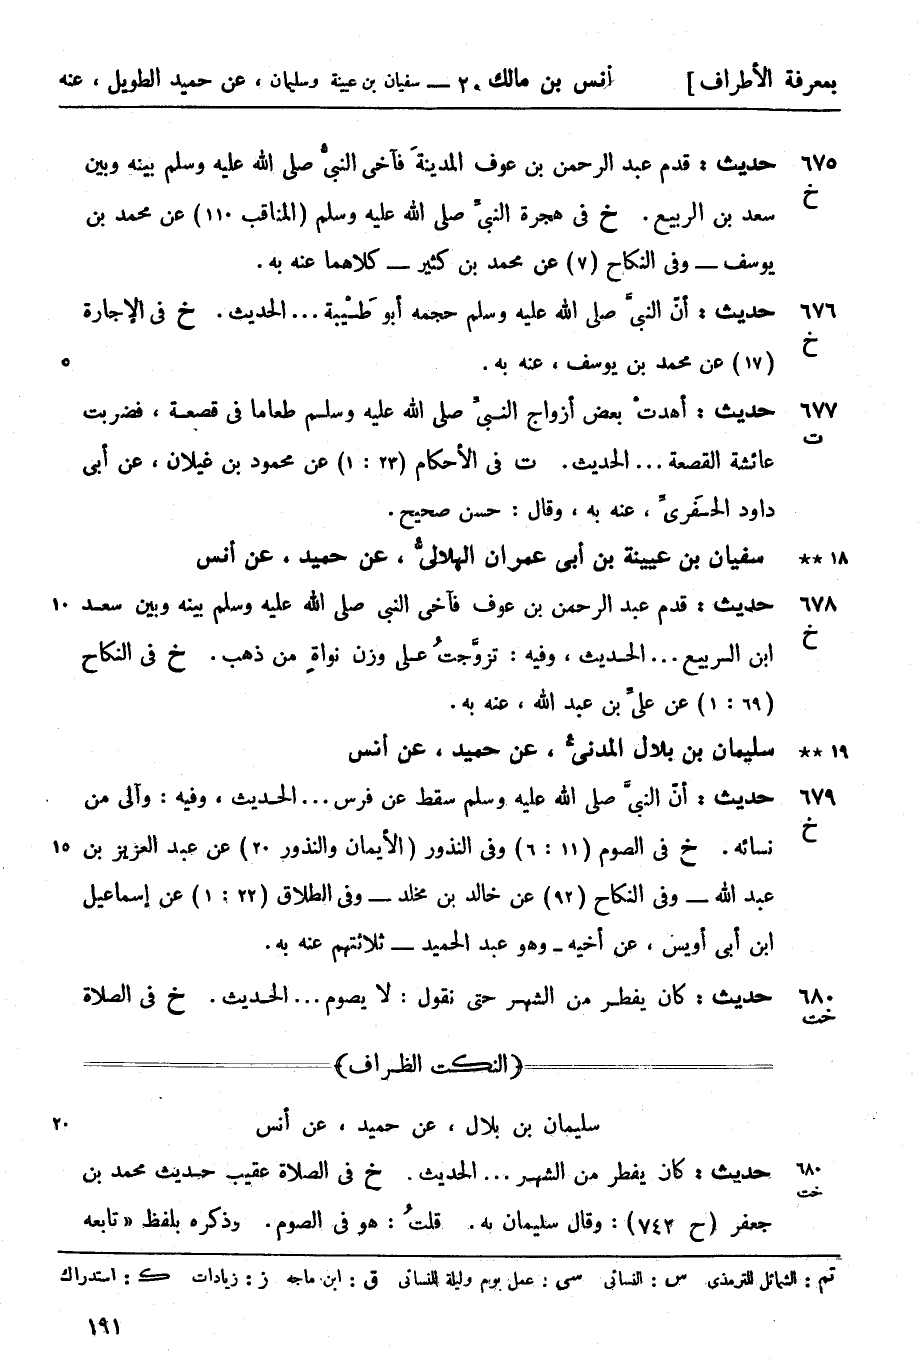 بمعرفة الأطراف] أنس بن مالك ٢٠ ــ سفيان بن عيينة وسليمان ، عن حميد الطويل ، عنه
٦٧٥ حديث : قدم عبد الرحمن بن عوف المدينةَ فآخى النبيُّ صلى الله عليه وسلم بينه وبين
خ سعد بن الربيع. خ فى هجرة النبيِّ صلى الله عليه وسلم (المناقب ١١٠) عن محمد بن
يوسف ــ وفى النكاح (٧) عن محمد بن كثير ــ كلاهما عنه به.
٦٧٦ حديث : أنّ النبيَّ صلى الله عليه وسلم حجمه أبو طَيْبة ... الحديث. خ فى الإجارة
خ (١٧) عن محمد بن يوسف ، عنه به. ٥
٦٧٧ حديث : أهدتْ بعض أزواج النبيِّ صلى الله عليه وسلم طعاما فى قصعة ، فضربت
ت عائشة القصعة ... الحديث. ت فى الأحكام (٢٣ : ١) عن محمود بن غيلان ، عن أبى
داود الحَفَرىِّ ، عنه به ، وقال : حسن صحيح.
١٨ ** سفيان بن عيينة بن أبى عمران الهلالىُّ ، عن حميد ، عن أنس
٦٧٨ حديث : قدم عبد الرحمن بن عوف فآخى النبي صلى الله عليه وسلم بينه وبين سعد ١٠
خ ابن الربيع ... الحديث ، وفيه : تزوَّجتُ على وزن نواةٍ من ذهب. خ فى النكاح
(٦٩ : ١) عن علىِّ بن عبد الله ، عنه به.
١٩ ** سليمان بن بلال المدنىُّ ، عن حميد ، عن أنس
٦٧٩ حديث : أنّ النبيَّ صلى الله عليه وسلم سقط عن فرس ... الحديث ، وفيه : وآلى من
خ نسائه. خ فى الصوم (١١ : ٦) وفى النذور (الأيمان والنذور ٢٠) عن عبد العزيز بن ١٥
عبد الله ــ وفى النكاح (٩٢) عن خالد بن مخلد ــ وفى الطلاق (٢٢ : ١) عن إسماعيل
ابن أبى أويس ، عن أخيه ــ وهو عبد الحميد ــ ثلاثتهم عنه به.
٦٨٠ حديث : كان يفطر من الشهر حتى نقول : لا يصوم ... الحديث. خ فى الصلاة
خت
(النكت الظراف)
سليمان بن بلال ، عن حميد ، عن أنس ٢٠
٦٨٠ حديث : كان يفطر من الشهر ... الحديث. خ فى الصلاة عقيب حديث محمد بن
خت جعفر (ح ٧٤٢) : وقال سليمان به. قلتُ : هو فى الصوم. وذكره بلفظ « تابعه
تم : الشمائل للترمذى س : النسائى سى : عمل يوم وليلة للنسائى ق : ابن ماجه ز : زيادات ك : استدراك
١٩١